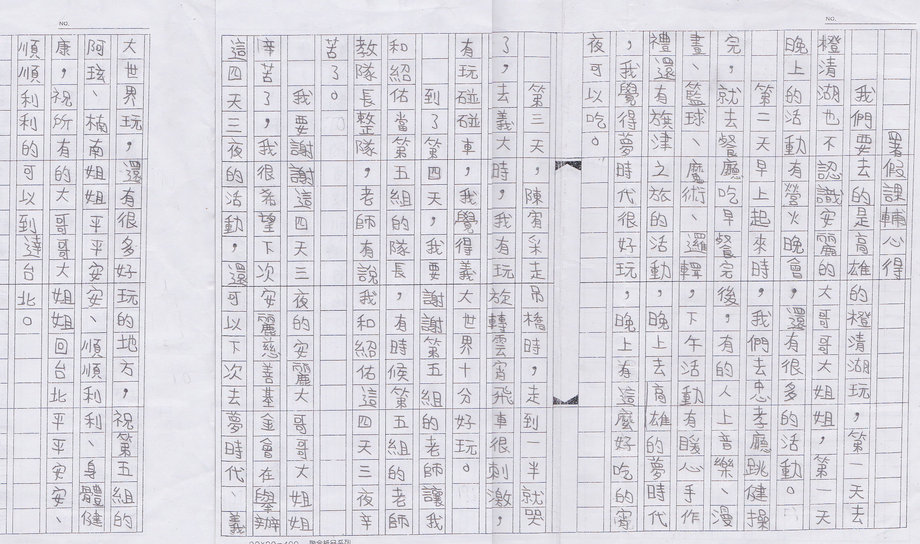 署假課輔心得
我們要去的是高雄的橙清湖玩，第一天去
橙清湖也不認識安麗的大哥哥大姐姐，第一天
晚上的活動有營火晚會，還有很多的活動。
第二天早上起來時，我們去忠孝廳跳健操
完，就去餐廳吃早餐完後，有的人上音樂、漫
畫、籃球、魔術、邏輯，下午活動有暖心手作
禮還有旗津之旅的活動，晚上去高雄的夢時代
，我覺得夢時代很好玩，晚上看這麼好吃的宵
夜可以吃。
第三天，陳宥采走吊橋時，走到一半就哭
了，去義大時，我有玩旋轉雲宵飛車很刺激，
有玩碰碰車，我覺得義大世界十分好玩。
到了第四天，我要謝謝第五組的老師讓我
和紹佑當第五組的隊長，有時候第五組的老師
教隊長整隊，老師有說我和紹佑這四天三夜辛
苦了。
我要謝謝這四天三夜的安麗大哥哥大姐姐
辛苦了，我很希望下次安麗慈善基金會在舉辦
這四天三夜的活動，還可以下次去夢時代、義
大世界玩，還有很多好玩的地方，祝第五組的
阿玹、楠南姐姐平平安安、順順利利、身體健
康，祝所有的大哥哥大姐姐回台北平平安安、
順順利利的可以到達台北。
NO.
NO.